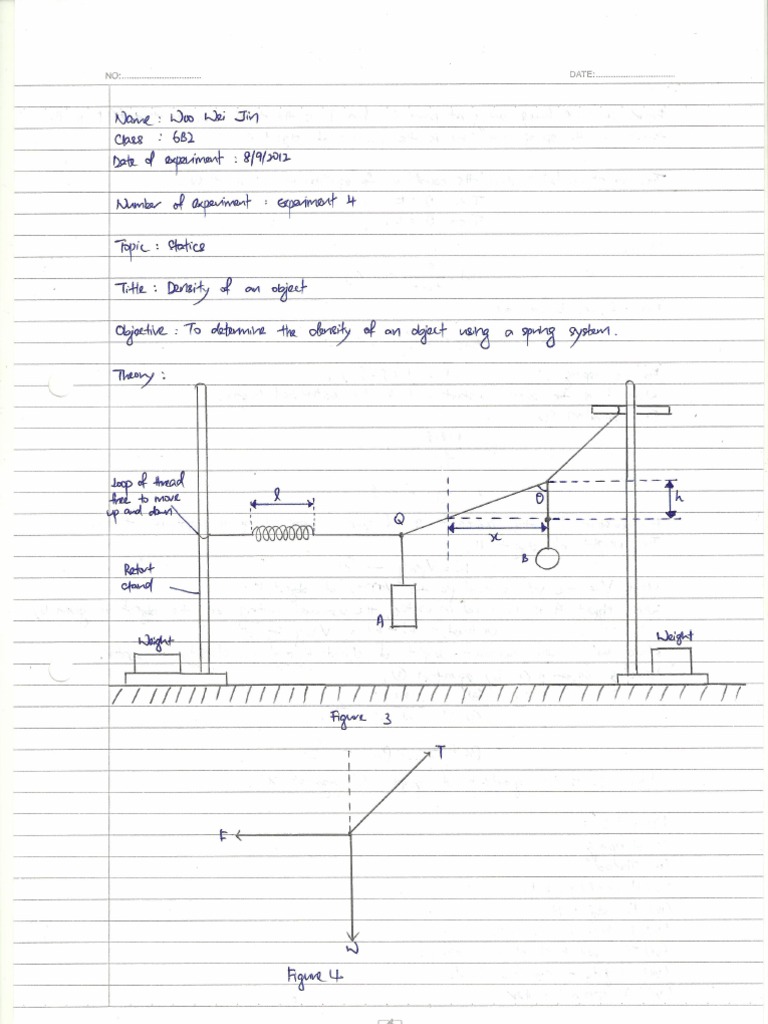 NO:
DATE:
Name : Woo Wei Jin
Class : 6B2
Date of experiment : 8/9/2012
Number of experiment : Experiment 4
Topic : Statics
Title : Density of an object
Objective : To determine the density of an object using a spring system.
Theory :
Loop of thread
free to move
up and down
l
Q
θ
h
x
B
Retort
stand
A
Weight
Weight
Figure 3
T
F
W
Figure 4